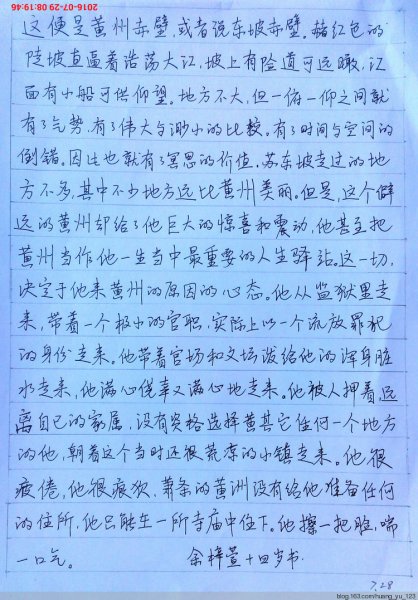 2016-07-29 08:19:46
这便是黄州赤壁,或者说东坡赤壁。赭红色的
陡坡直逼着浩荡大江,坡上有险道可远瞰,江
面有小船可供仰望。地方不大,但一俯一仰之间就
有了气势,有了伟大与渺小的比较。有了时间与空间的
倒错。因此也就有了冥思的价值,苏东坡走过的地
方不多,其中不少地方远比黄州美丽。但是,这个僻
远的黄州却给了他巨大的惊喜和震动,他甚至把
黄州当作他一生当中最重要的人生驿站。这一切,
决定于他来黄州的原因的心态。他从监狱里走
来,带着一个极小的官职,实际上以一个流放罪犯
的身份走来,他带着官场和文坛泼给他的浑身脏
水走来,他满心侥幸又满心地走来。他被人押着,远
离自己的家属,没有资格选择黄其它任何一个地方
的他,朝着这个当时还很荒凉的小镇走来。他很
疲倦,他很狼狈,萧条的黄州没有给他准备任何
的住所,他只能生一所寺庙中住下。他擦一把脸,喘
一口气。 余梓萱十四岁书.
7.28
blog.163.com/huang_yu_123